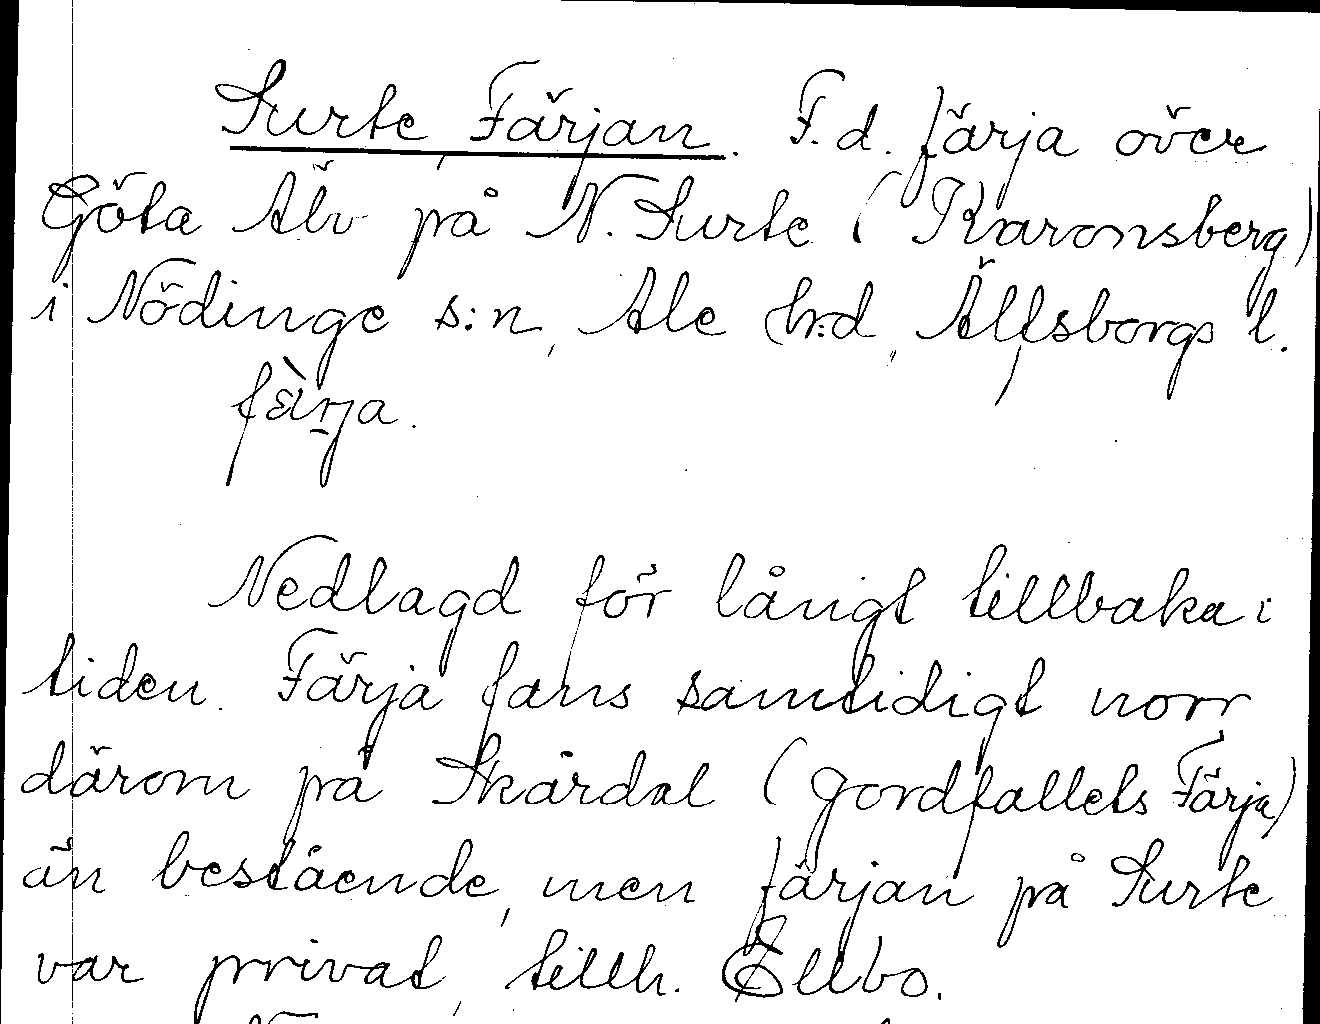 Surte Färjan. F.d. färja över
Göta Älv på N. Surte (Karonsberg)
i Nödinge s:n, Ale h:d, Älfsborgs l.
färja.
Nedlagd för långt tillbaka i
tiden. Färja fans samtidigt norr
därom på Skårdal (jordfallets Färja)
än bestående, men färjan på Surte
var privat, tillh. Ellbo.